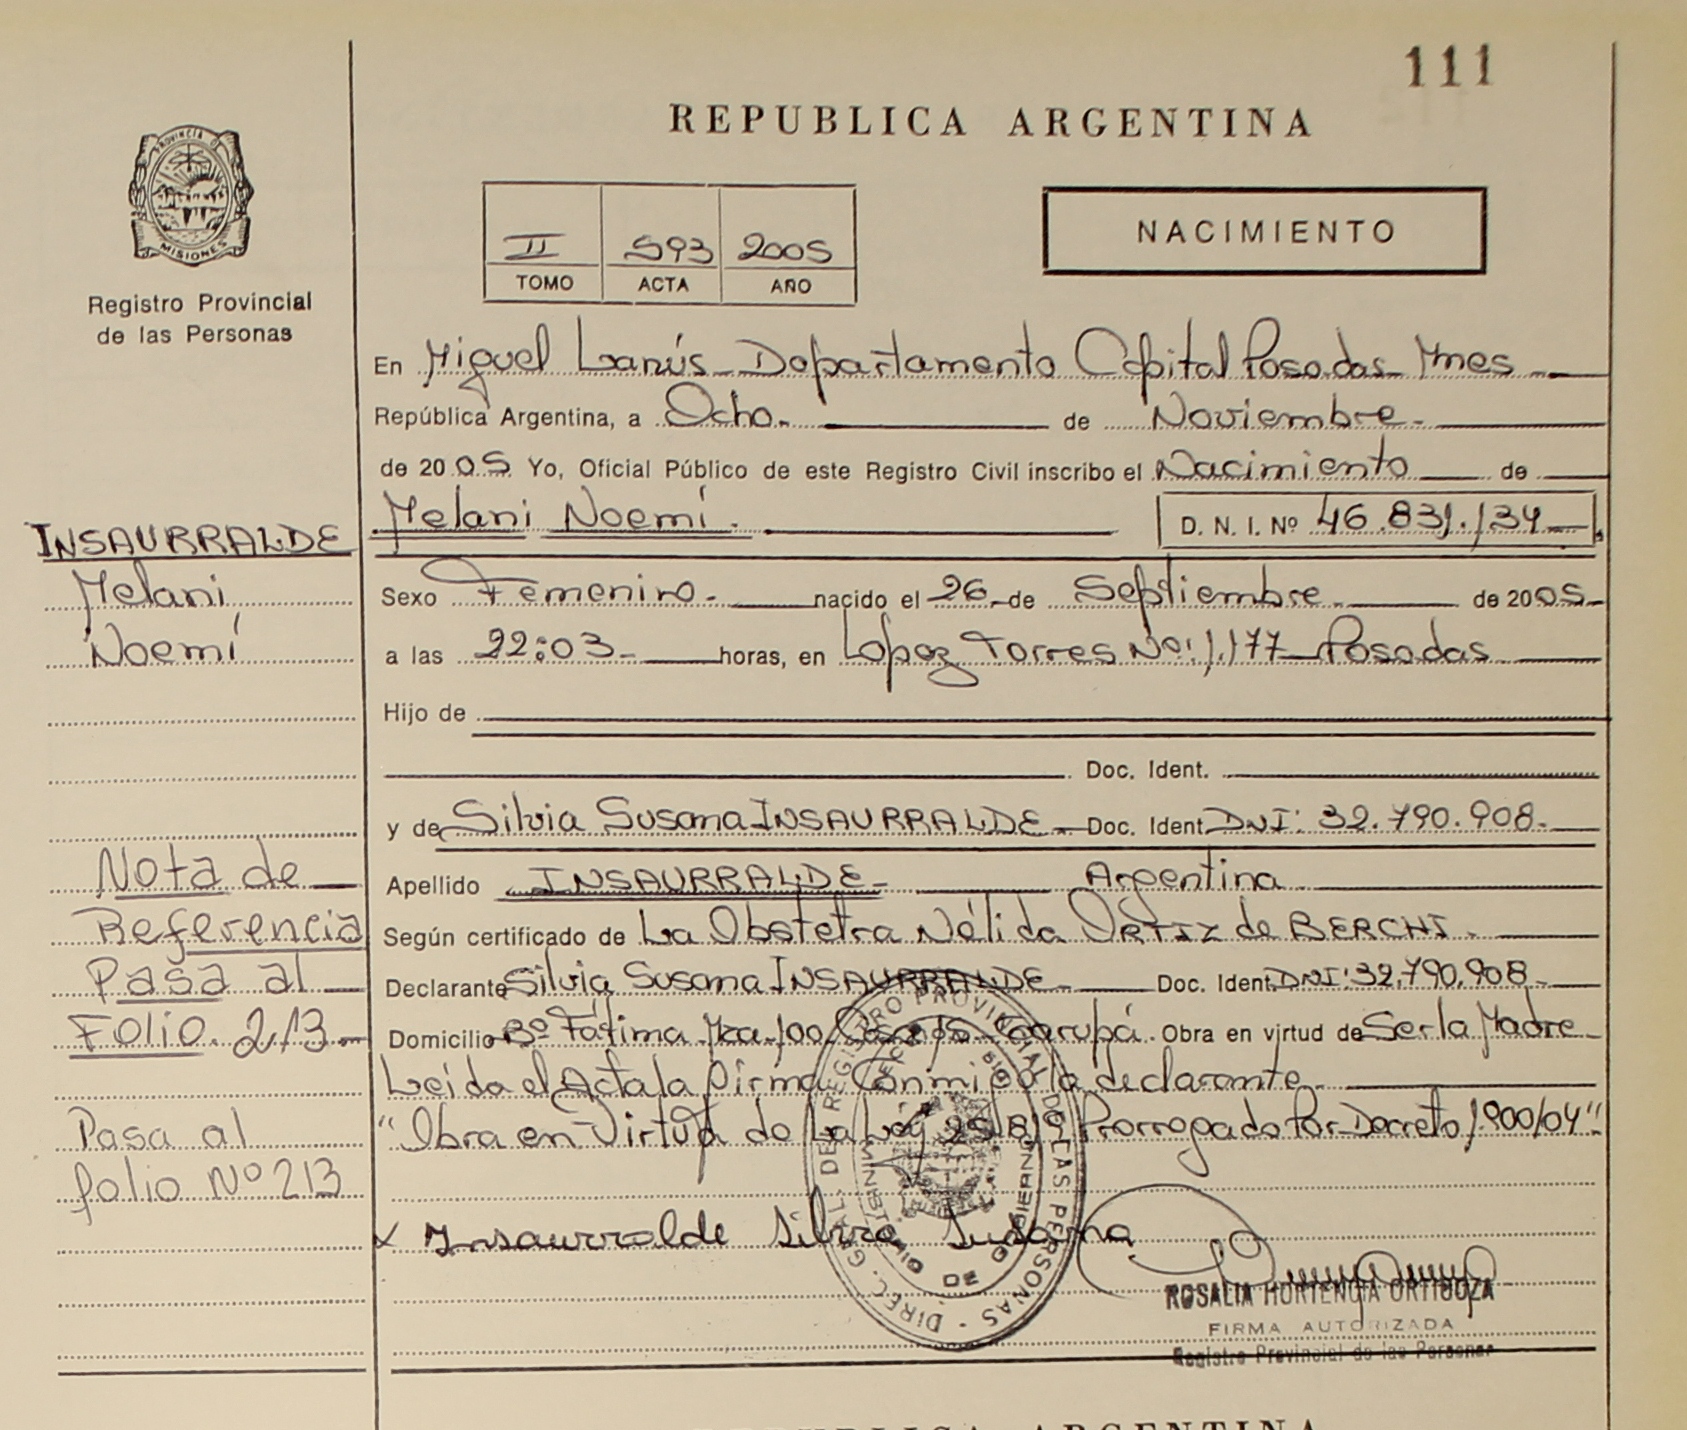 111
REPUBLICA ARGENTINA
PROVINCIA DE
MISIONES
Registro Provincial
de las Personas
II 593 2005
TOMO ACTA AÑO
NACIMIENTO
En Miguel Lanús - Departamento Capital Posadas Mnes
República Argentina, a Ocho. de Noviembre.
de 2005 Yo, Oficial Público de este Registro Civil inscribo el Nacimiento de
Melani Noemí. D. N. I. Nº 46.831.134
Sexo Femenino. nacido el 26 de Septiembre. de 2005
a las 22:03 horas, en Lopez Torres Nº: 1.177 Posadas
Hijo de
Doc. Ident.
y de Silvia Susana INSAURRALDE Doc. Ident. DNI: 32.790.908.
Apellido INSAURRALDE Argentina
Según certificado de La Obstetra Nélida ORTIZ de BERCHI.
Declarante Silvia Susana INSAURRALDE Doc. Ident. DNI: 32.790.908
Domicilio Bº Fátima Mza 100 Garupá. Obra en virtud de Ser la Madre
Leida el Acta la firma Conmigo la declarante
"Obra en Virtud de La Ley 25.819 Prorrogado Por Decreto 1.900/04"
x Insaurralde Silvia Susana
DIREC. GRAL. DE REGISTRO PROVINCIAL DE LAS PERSONAS
ROSALIA HORTENCIA ORTIGOZA
FIRMA AUTORIZADA
Registro Provincial de las Personas
INSAURRALDE
Melani
Noemí
Nota de
Referencia
Pasa al
Folio. 213
Pasa al
folio Nº 213
REPUBLICA ARGENTINA